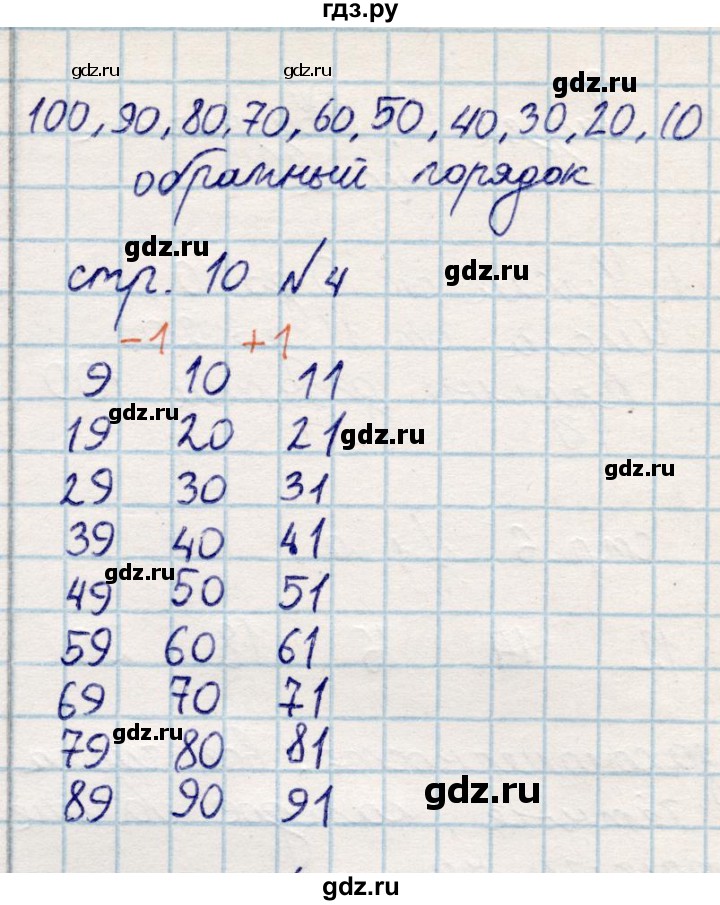 гдз.ру
gdz.ru gdz.ru gdz.ru
100, 90, 80, 70, 60, 50, 40, 30, 20, 10
обратный порядок
gdz.ru gdz.ru
стр. 10 №4
-1 +1
9 10 11
gdz.ru
19 20 21
gdz.ru
gdz.ru
29 30 31
39 40 41
gdz.ru
49 50 51
59 60 61
69 70 71
gdz.ru
79 80 81
gdz.ru
89 90 91
gdz.ru